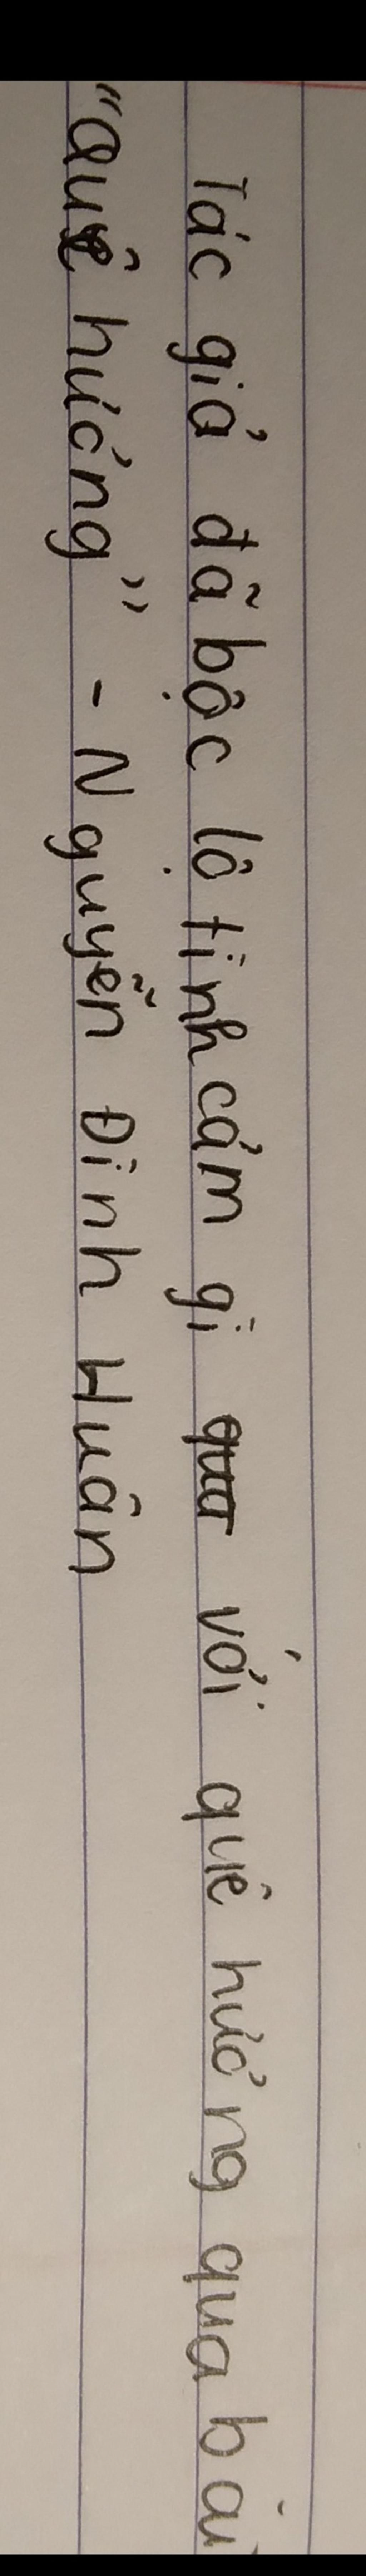 Tác giả đã bộc lộ tình cảm gì với quê hương qua bài
"Quê hương" - Nguyễn Đình Huân